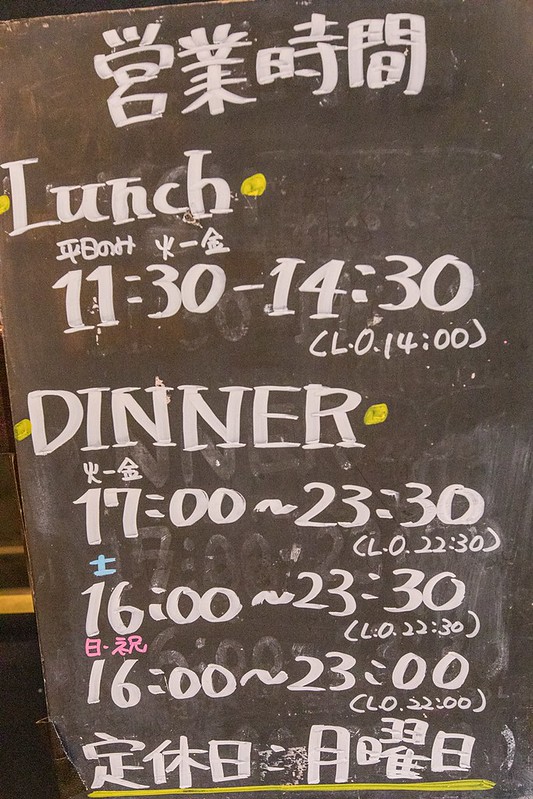 営業時間
Lunch
平日のみ 火ー金
11:30-14:30
(L.O.14:00)
DINNER
火ー金
17:00~23:30
(L.O.22:30)
土
16:00~23:30
(L.O.22:30)
日・祝
16:00~23:00
(L.O.22:00)
定休日:月曜日